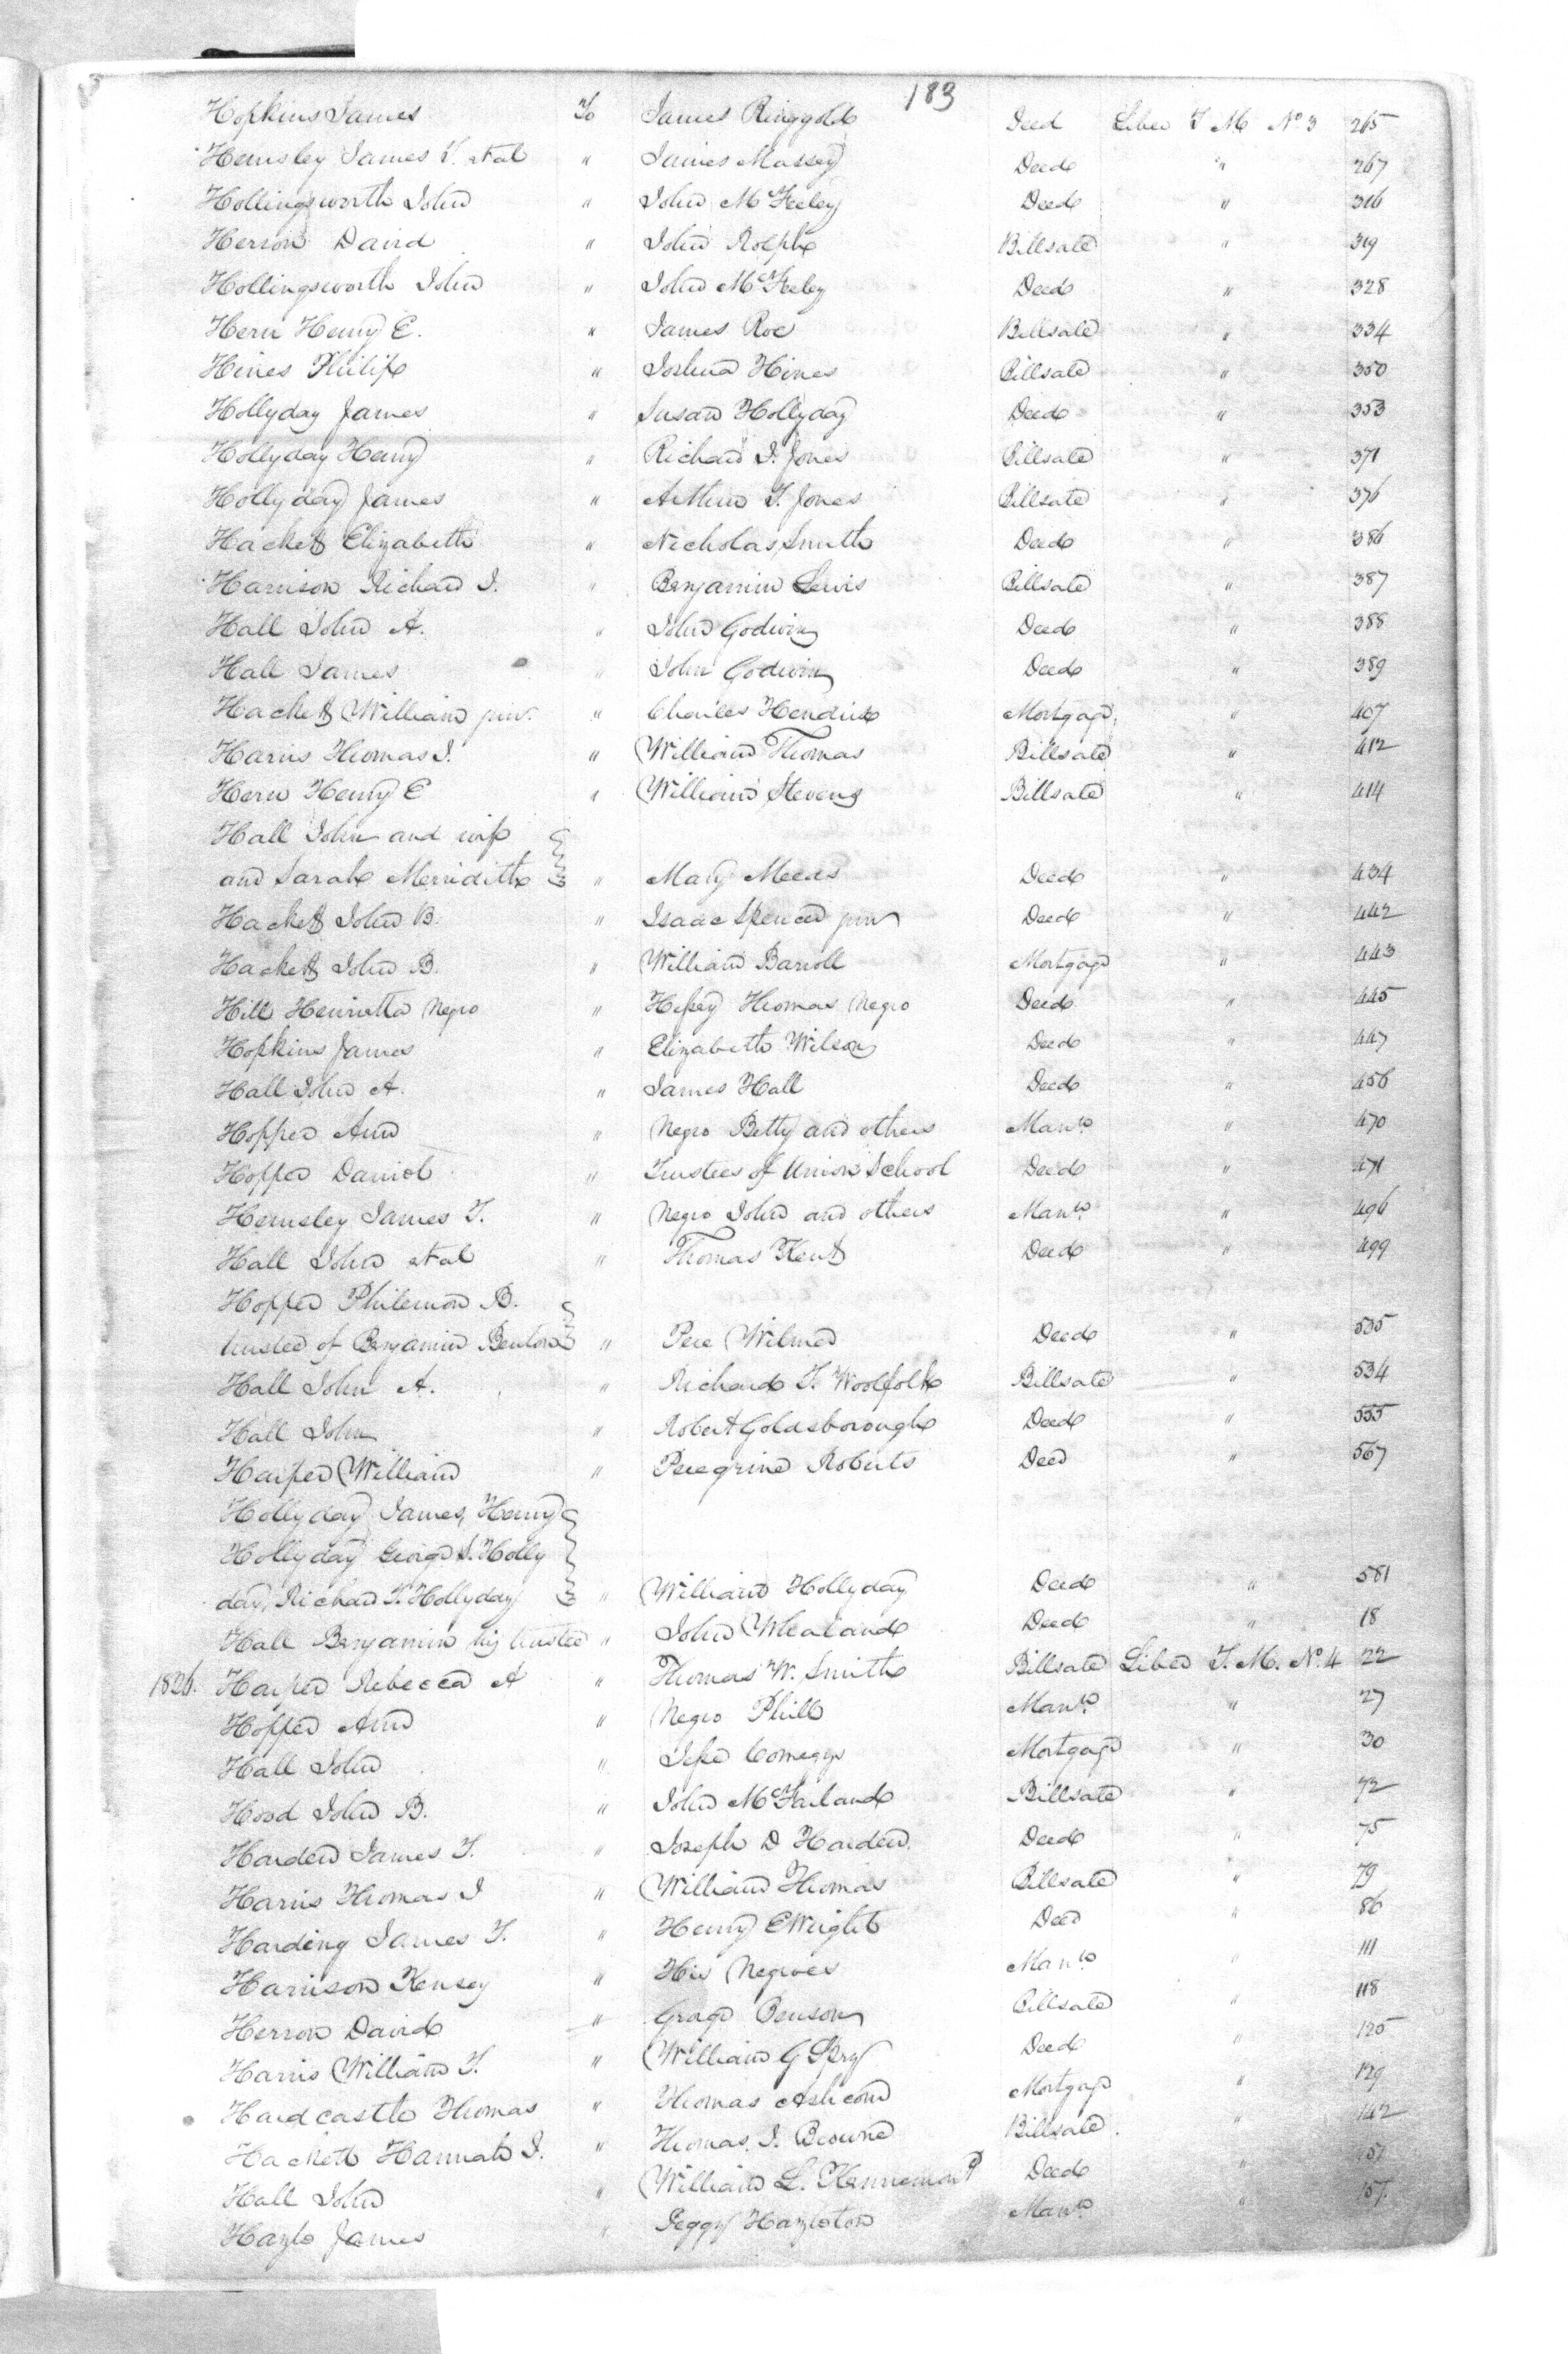 183
Hopkins James To James Ringgold Deed Liber T M No 3 265
Hemsley James T. et al " James Massey Deed " 267
Hollingsworth John " John McFeeley Deed " 316
Herron David " John Rolph Billsale " 319
Hollingsworth John " John McFeeley Deed " 328
Hern Henry E. " James Roe Billsale " 334
Hines Philip " Joshua Hines Billsale " 350
Hollyday James " Susan Hollyday Deed " 353
Hollyday Henry " Richard I. Jones Billsale " 371
Hollyday James " Arthur T. Jones Billsale " 376
Hackett Elizabeth " Nicholas Smith Deed " 386
Harrison Richard I. " Benjamin Lewis Billsale " 387
Hall John A. " John Godwin Deed " 388
Hall James " John Godwin Deed " 389
Hackett William junr. " Charles Hendrix Mortgage " 407
Harris Thomas I. " William Thomas Billsale " 412
Hern Henry E " William Stevens Billsale " 414
Hall John and wife
and Sarah Merridith " Mary Meeds Deed " 434
Hackett John B. " Isaac Spencer junr Deed " 442
Hackett John B. " William Barroll Mortgage " 443
Hill Henrietta Negro " Hessey Thomas Negro Deed " 445
Hopkins James " Elizabeth Wilson Deed " 447
Hall John A. " James Hall Deed " 456
Hopper Ann " Negro Betty and others Mann. " 470
Hopper Daniel " Trustees of Union School Deed " 471
Hemsley James T. " Negro John and others Mann. " 496
Hall John et al " Thomas Kent Deed " 499
Hopper Philemon B.
trustee of Benjamin Benton " Pere Wilmer Deed " 535
Hall John A. " Richard T. Woolfolk Billsale " 534
Hall John " Robert Goldsborough Deed " 555
Harper William " Peregrine Roberts Deed " 567
Hollyday James, Henry
Hollyday George S. Holly
day, Richard T. Hollyday " William Hollyday Deed " 581
Hall Benjamin his trustee " John Whaland Deed 18
1826. Harper Rebecca A " Thomas W. Smith Billsale Liber T. M. No. 4 22
Hopper Ann " Negro Phill Mann. " 27
Hall John " Jesse Comegys Mortgage " 30
Hood John B. " John McFarland Billsale " 72
Harden James T. " Joseph D Harden Deed " 75
Harris Thomas I " William Thomas Billsale " 79
Harding James T. " Henry E Wright Deed " 86
Harrison Kensey " His Negroes Mann. " 111
Herron David " Benson Billsale " 118
Harris William T. " William G Spry Deed " 125
Hardcastle Thomas " Thomas Ashcom Mortgage " 129
Hackett Hannah I. " Thomas I. Browne Billsale " 142
Hall John " William L. Deed "
James " Peggy Hazleton Mann. " 157